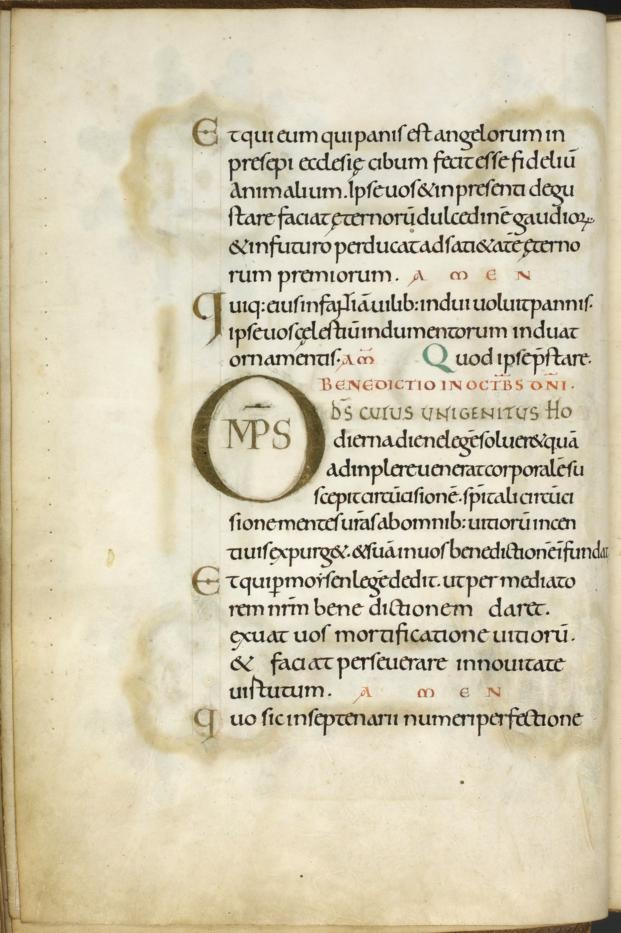 Et qui eum qui panis est angelorum in
presepi ecclesię cibum fecit esse fideliū
animalium. Ipse uos & in presenti degu
stare faciat ęternorū dulcedinē gaudioꝝ
& in futuro perducat ad sati&atē ęterno
rum premiorum. A M E N
Quiq: eius infantiā uilib: indui uoluit pannis.
ipse uos cęlestiū indumentorum induat
ornamentis. AM̄ Quod ipse p̄stare.
BENEDICTIO IN OCTB̄S DN̄I.
OMP̄S DS̄ CUIUS UNIGENITUS HO
dierna die ne legē solueret quā
adimplere uenerat corporalē su
scepit circūcisionē. sp̄itali circūci
sione mentes ur̄as ab omnib: uitiorū incen
tiuis expurg&. & suā in uos benedictionē infundat
Et qui p moysen legē dedit. ut per mediato
rem nrm̄ bene dictionem daret.
exuat uos mortificatione uitiorū.
& faciat perseuerare in nouitate
uirtutum. A M E N
Quo sic in septenarii numeri perfectione